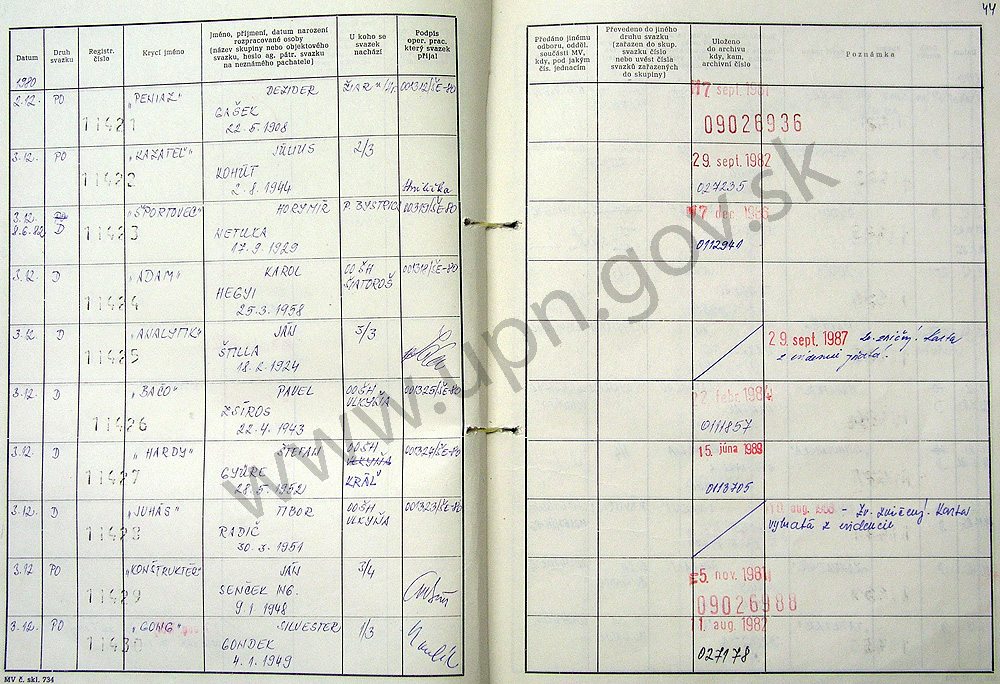 44
Datum
Druh svazku
Registr. číslo
Krycí jméno
Jméno, příjmení, datum narození
rozpracované osoby
(název skupiny nebo objektového
svazku, heslo ag. pátr. svazku
na neznámého pachatele)
U koho se
svazek
nachází
Podpis
oper. prac.
který svazek
přijal
Předáno jinému
odboru, odděl.
součásti MV,
kdy, pod jakým
čís. jednacím
Převedeno do jiného
druhu svazku
(zařazen do skup.
svazku číslo
nebo uvést čísla
svazků zařazených
do skupiny)
Uloženo
do archivu
kdy, kam,
archivní číslo
Poznámka
1980
2.12. PO 11421 "PENIAZ" DEZIDER
GAŠEK
22. 5. 1908
001312/ŠE-80
17 sept. 1981
09026936
3.12. PO 11422 "KAZATEĽ" JÚLIUS 2/3
KOHÚT
2. 8. 1944
29. sept. 1982
027235
3.12.
8.6.82 D 11423 "ŠPORTOVEC" HORYMÍR P. BYSTRICA 00319/ŠE-80
NETUKA
17. 9. 1929
0112941
3.12. D 11424 "ADAM" KAROL OO ŠH
ŠIATOROŠ
HEGYI
25. 3. 1958
3.12. D 11425 "ANALYTIK" JÁN 3/3
ŠTILLA
18. 2. 1924
29. sept. 1987 Zv. zničený! Karta
z evidencie
3.12. D 11426 "BAČO" PAVEL OO ŠH
VLKYŇA 001325/ŠE-80
ZSÍROS
22. 4. 1943
22 febr. 1984
0111857
3.12. D 11427 "HARDY" ŠTEFAN OO ŠH
VLKYŇA
KRÁĽ 001324/ŠE-80
GYÜRE
28. 5. 1952
15. júna 1989
0113705
3.12. D 11428 "JUHÁS" TIBOR OO ŠH
VLKYŇA 001323/ŠE-80
RADIČ
30. 3. 1951
10. aug. 1988 - Zv. zničený! Karta
vybratá z evidencie
3.12 PO 11429 "KONŠTRUKTÉR" JÁN 3/4
SENČEK ING.
9. 1. 1948
5. nov. 1981
09026988
3.12. PO 11430 "GONG" SILVESTER 1/3
GONDEK
4. 1. 1949
11. aug. 1982
027178
MV č. skl. 734
www.upn.gov.sk